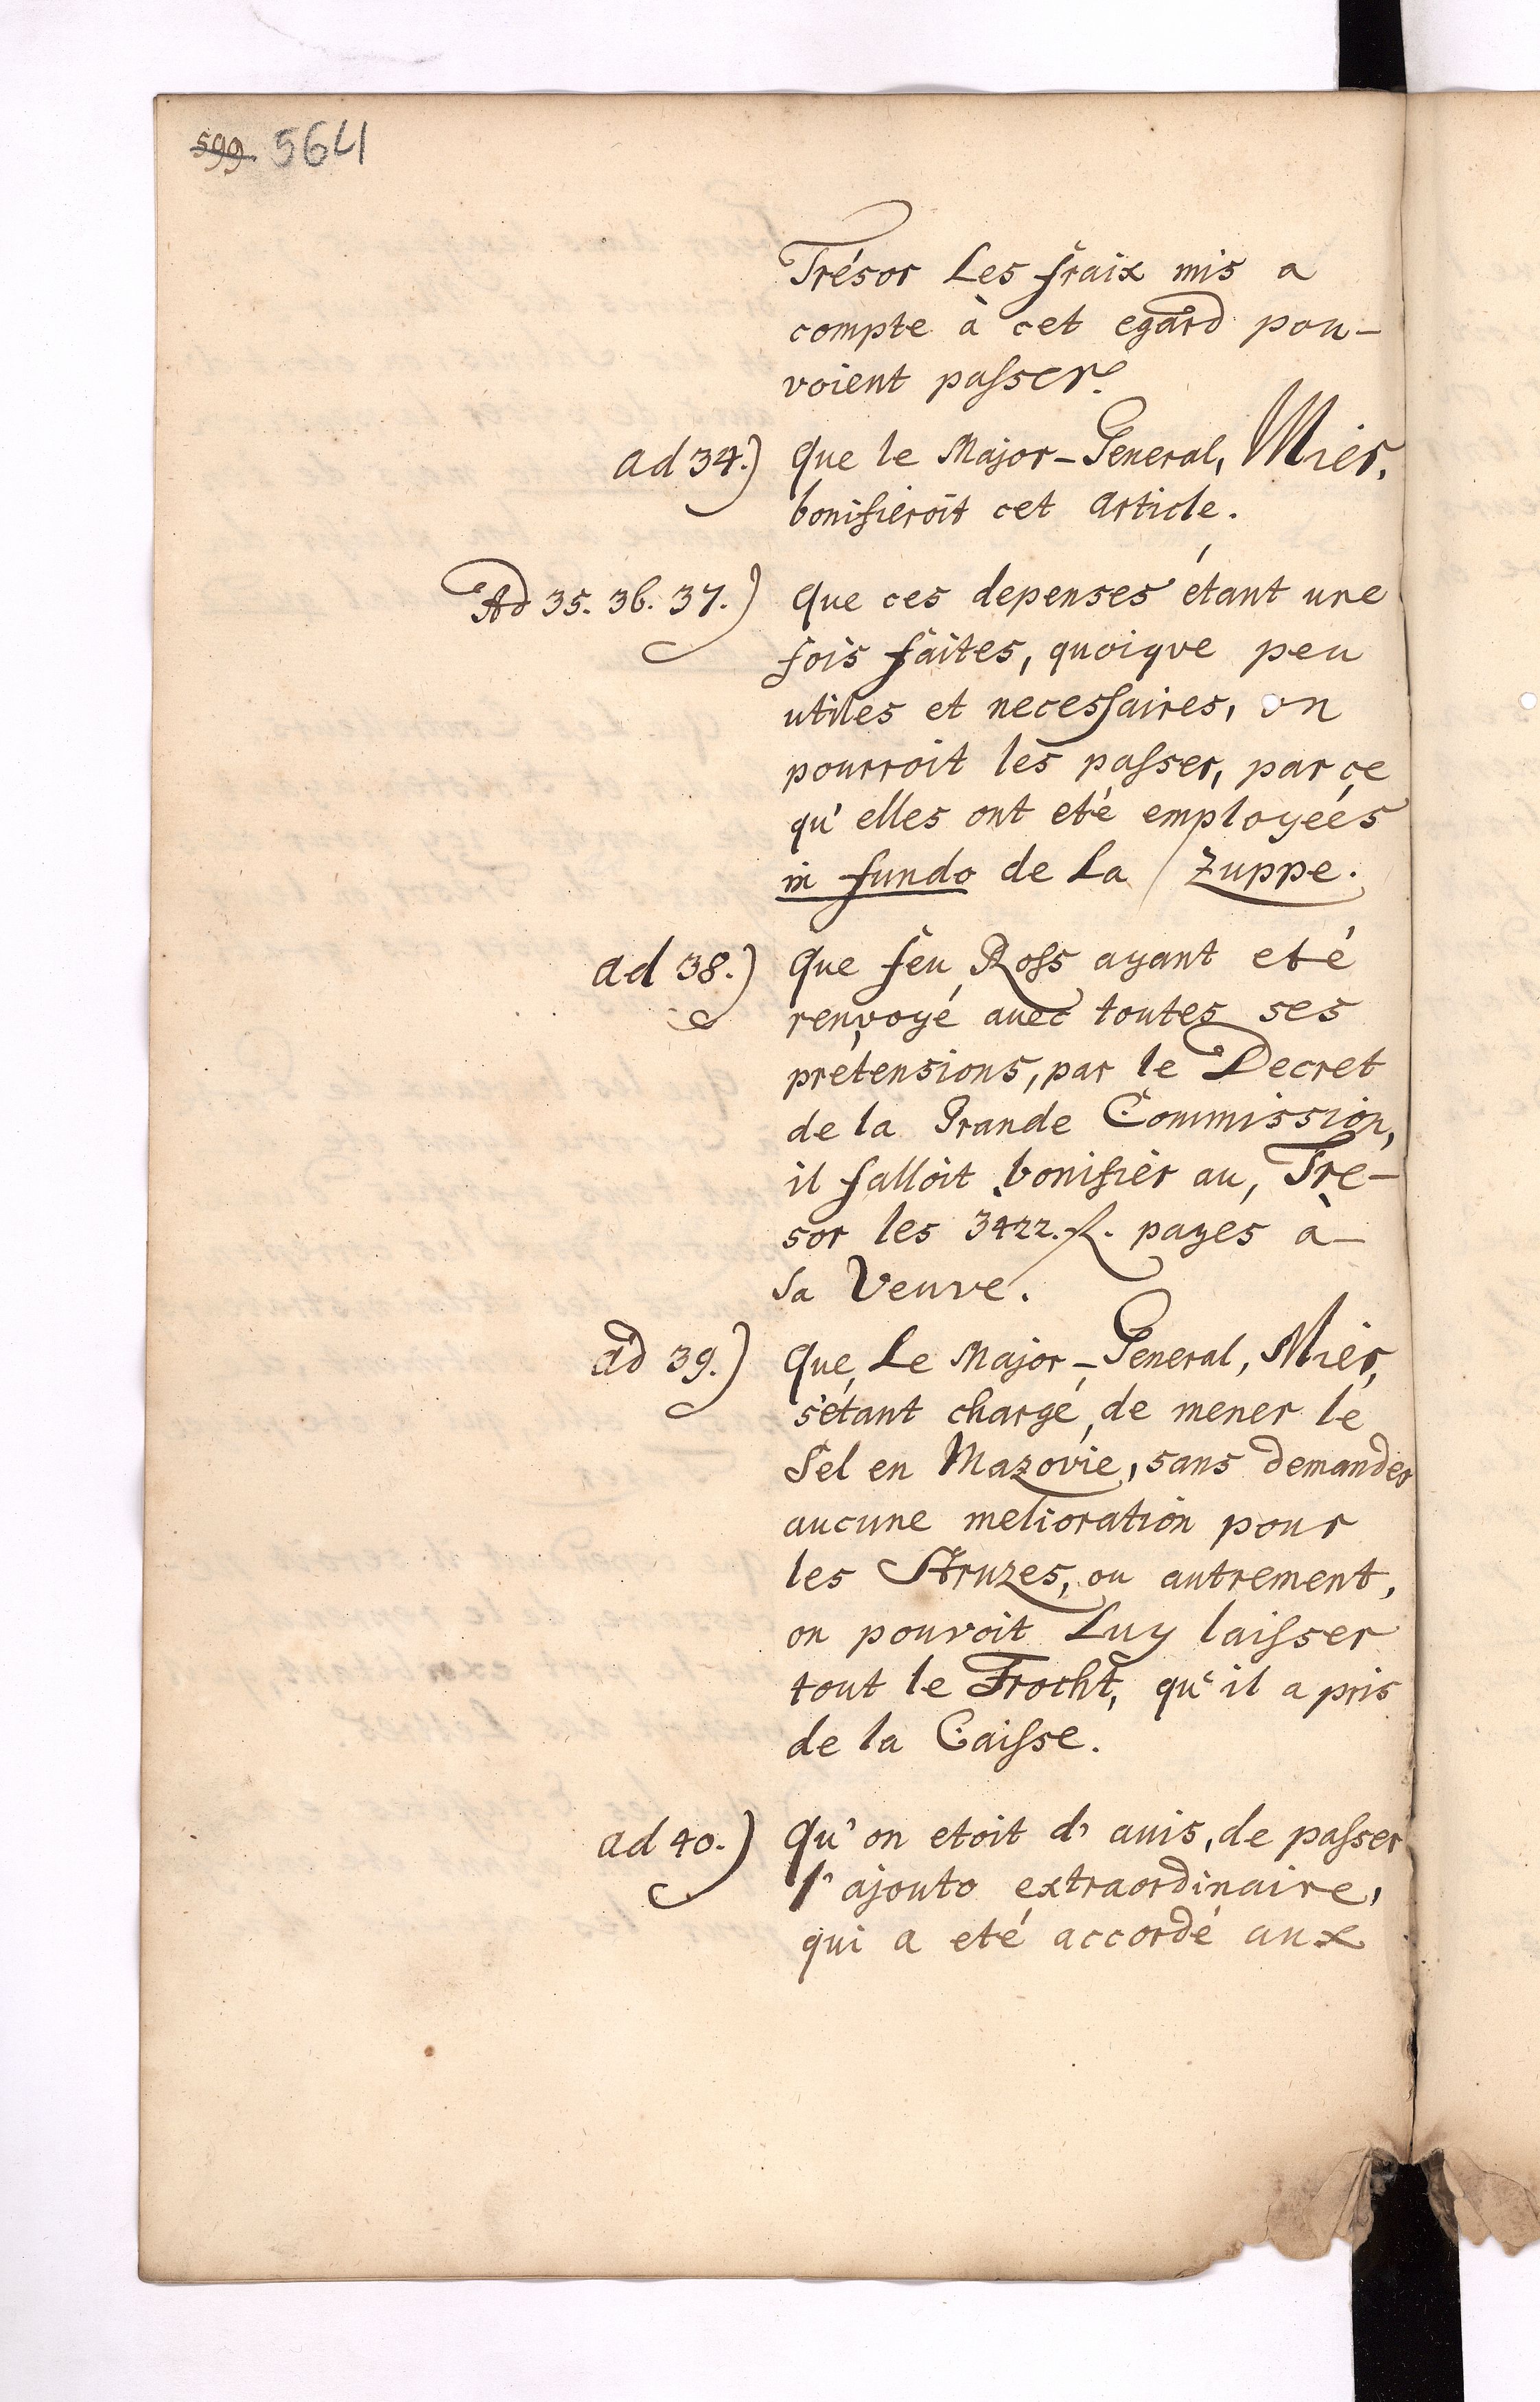 599. 564
Trésor Les fraix mis a
compte à cet egard pou-
voient passer.
ad 34.) que le Major-General, Mier,
bonifieroit cet article.
Ad 35. 36. 37.) que ces depenses étant une
fois faites, quoique peu
utiles et necessaires, on
pourroit les passer, par ce
qu'elles ont eté employeés
in fundo de La Zuppe.
ad 38.) que feu Ross ayant eté
renvoyé avec toutes ses
prétensions, par le Decret
de la Grande Commission,
il falloit bonifier au, Tre-
sor les 3422. fl. payes à-
sa Veuve.
ad 39.) que, Le Major-General, Mier,
s'étant chargé, de mener le
Sel en Mazovie, sans demander
aucune melioration pour
les Struzes, ou autrement,
on pouvoit Luy laisser
tout le Frocht, qu'il a pris
de la Caisse.
ad 40.) qu'on etoit d'avis, de passer
l'ajouto extraordinaire,
qui a eté accordé aux